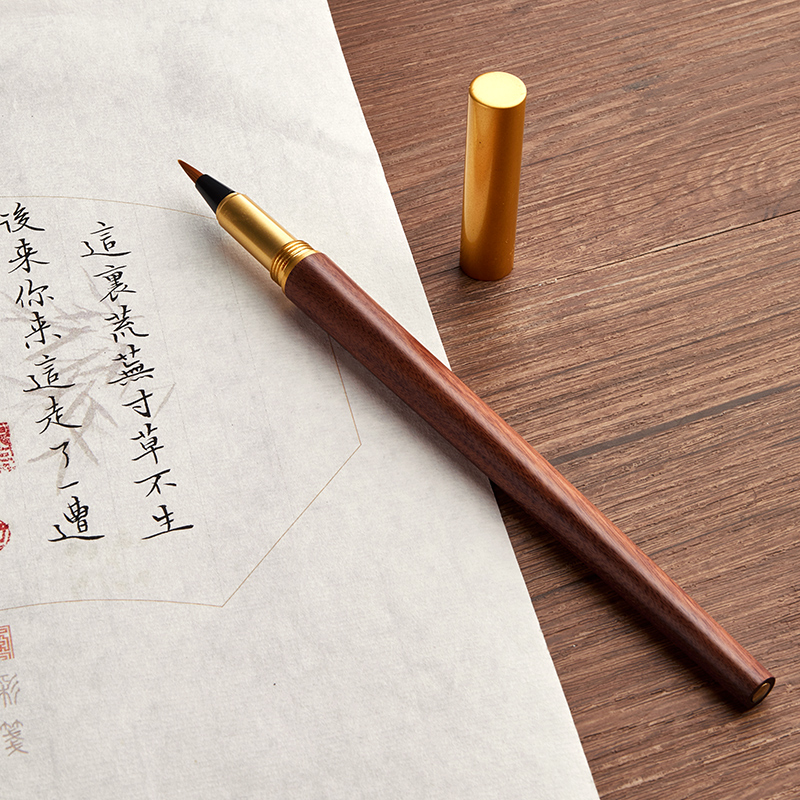 這裏荒蕪寸草不生
後来你来這走了一遭